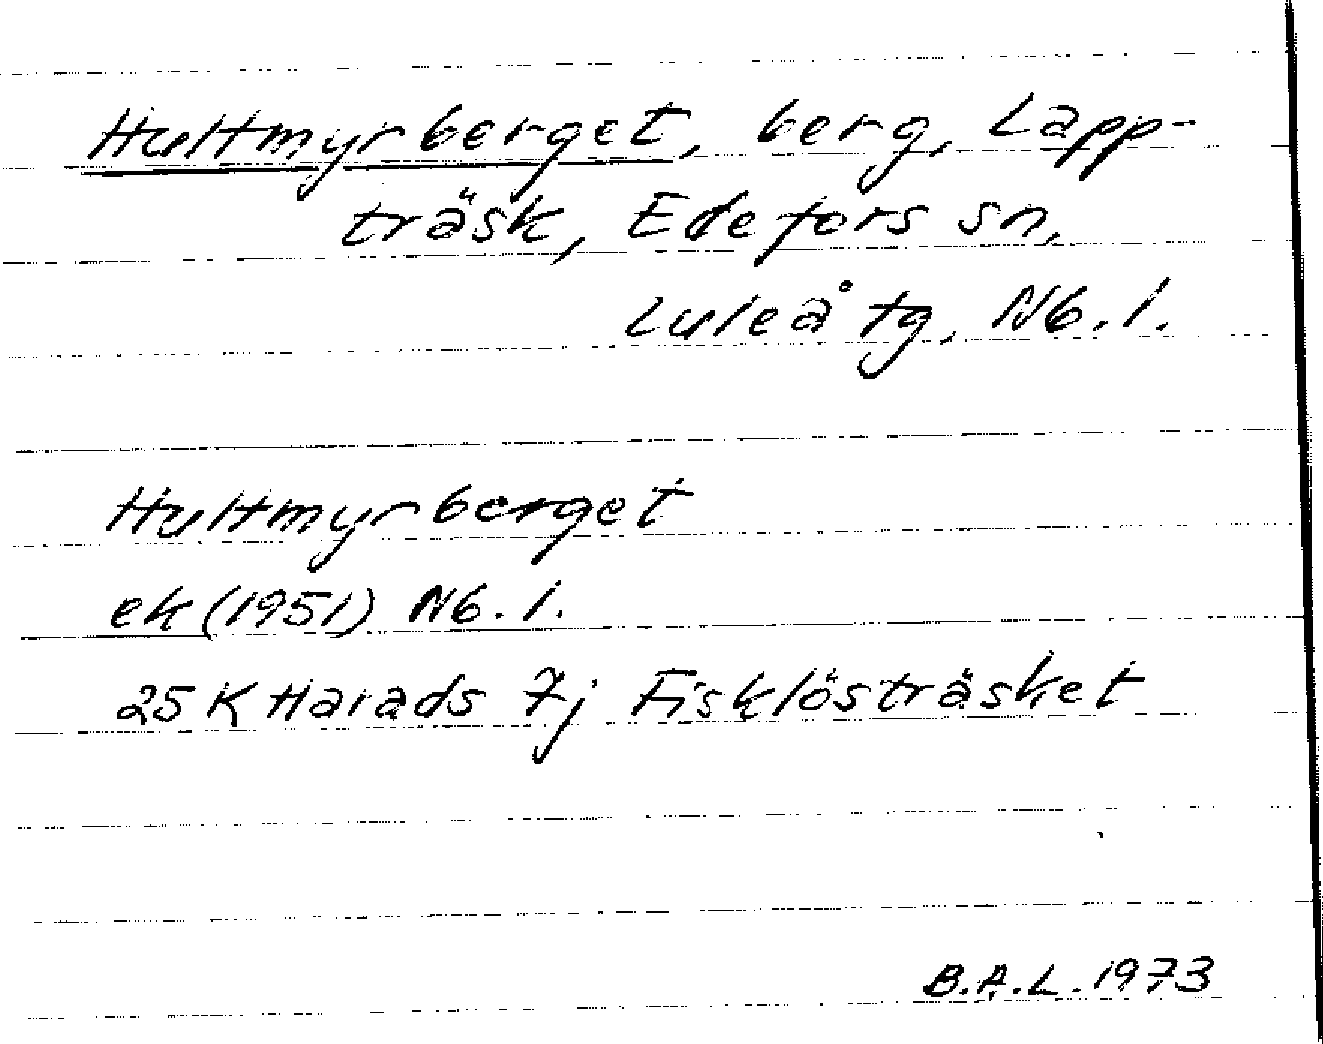 Hultmyrberget, berg, Lapp-
träsk, Edefors sn,
Luleå tg, Nb. l.
Hultmyrberget
ek (1951) Nb. l.
25 K Harads 7j Fisklösträsket
B.A.L. 1973